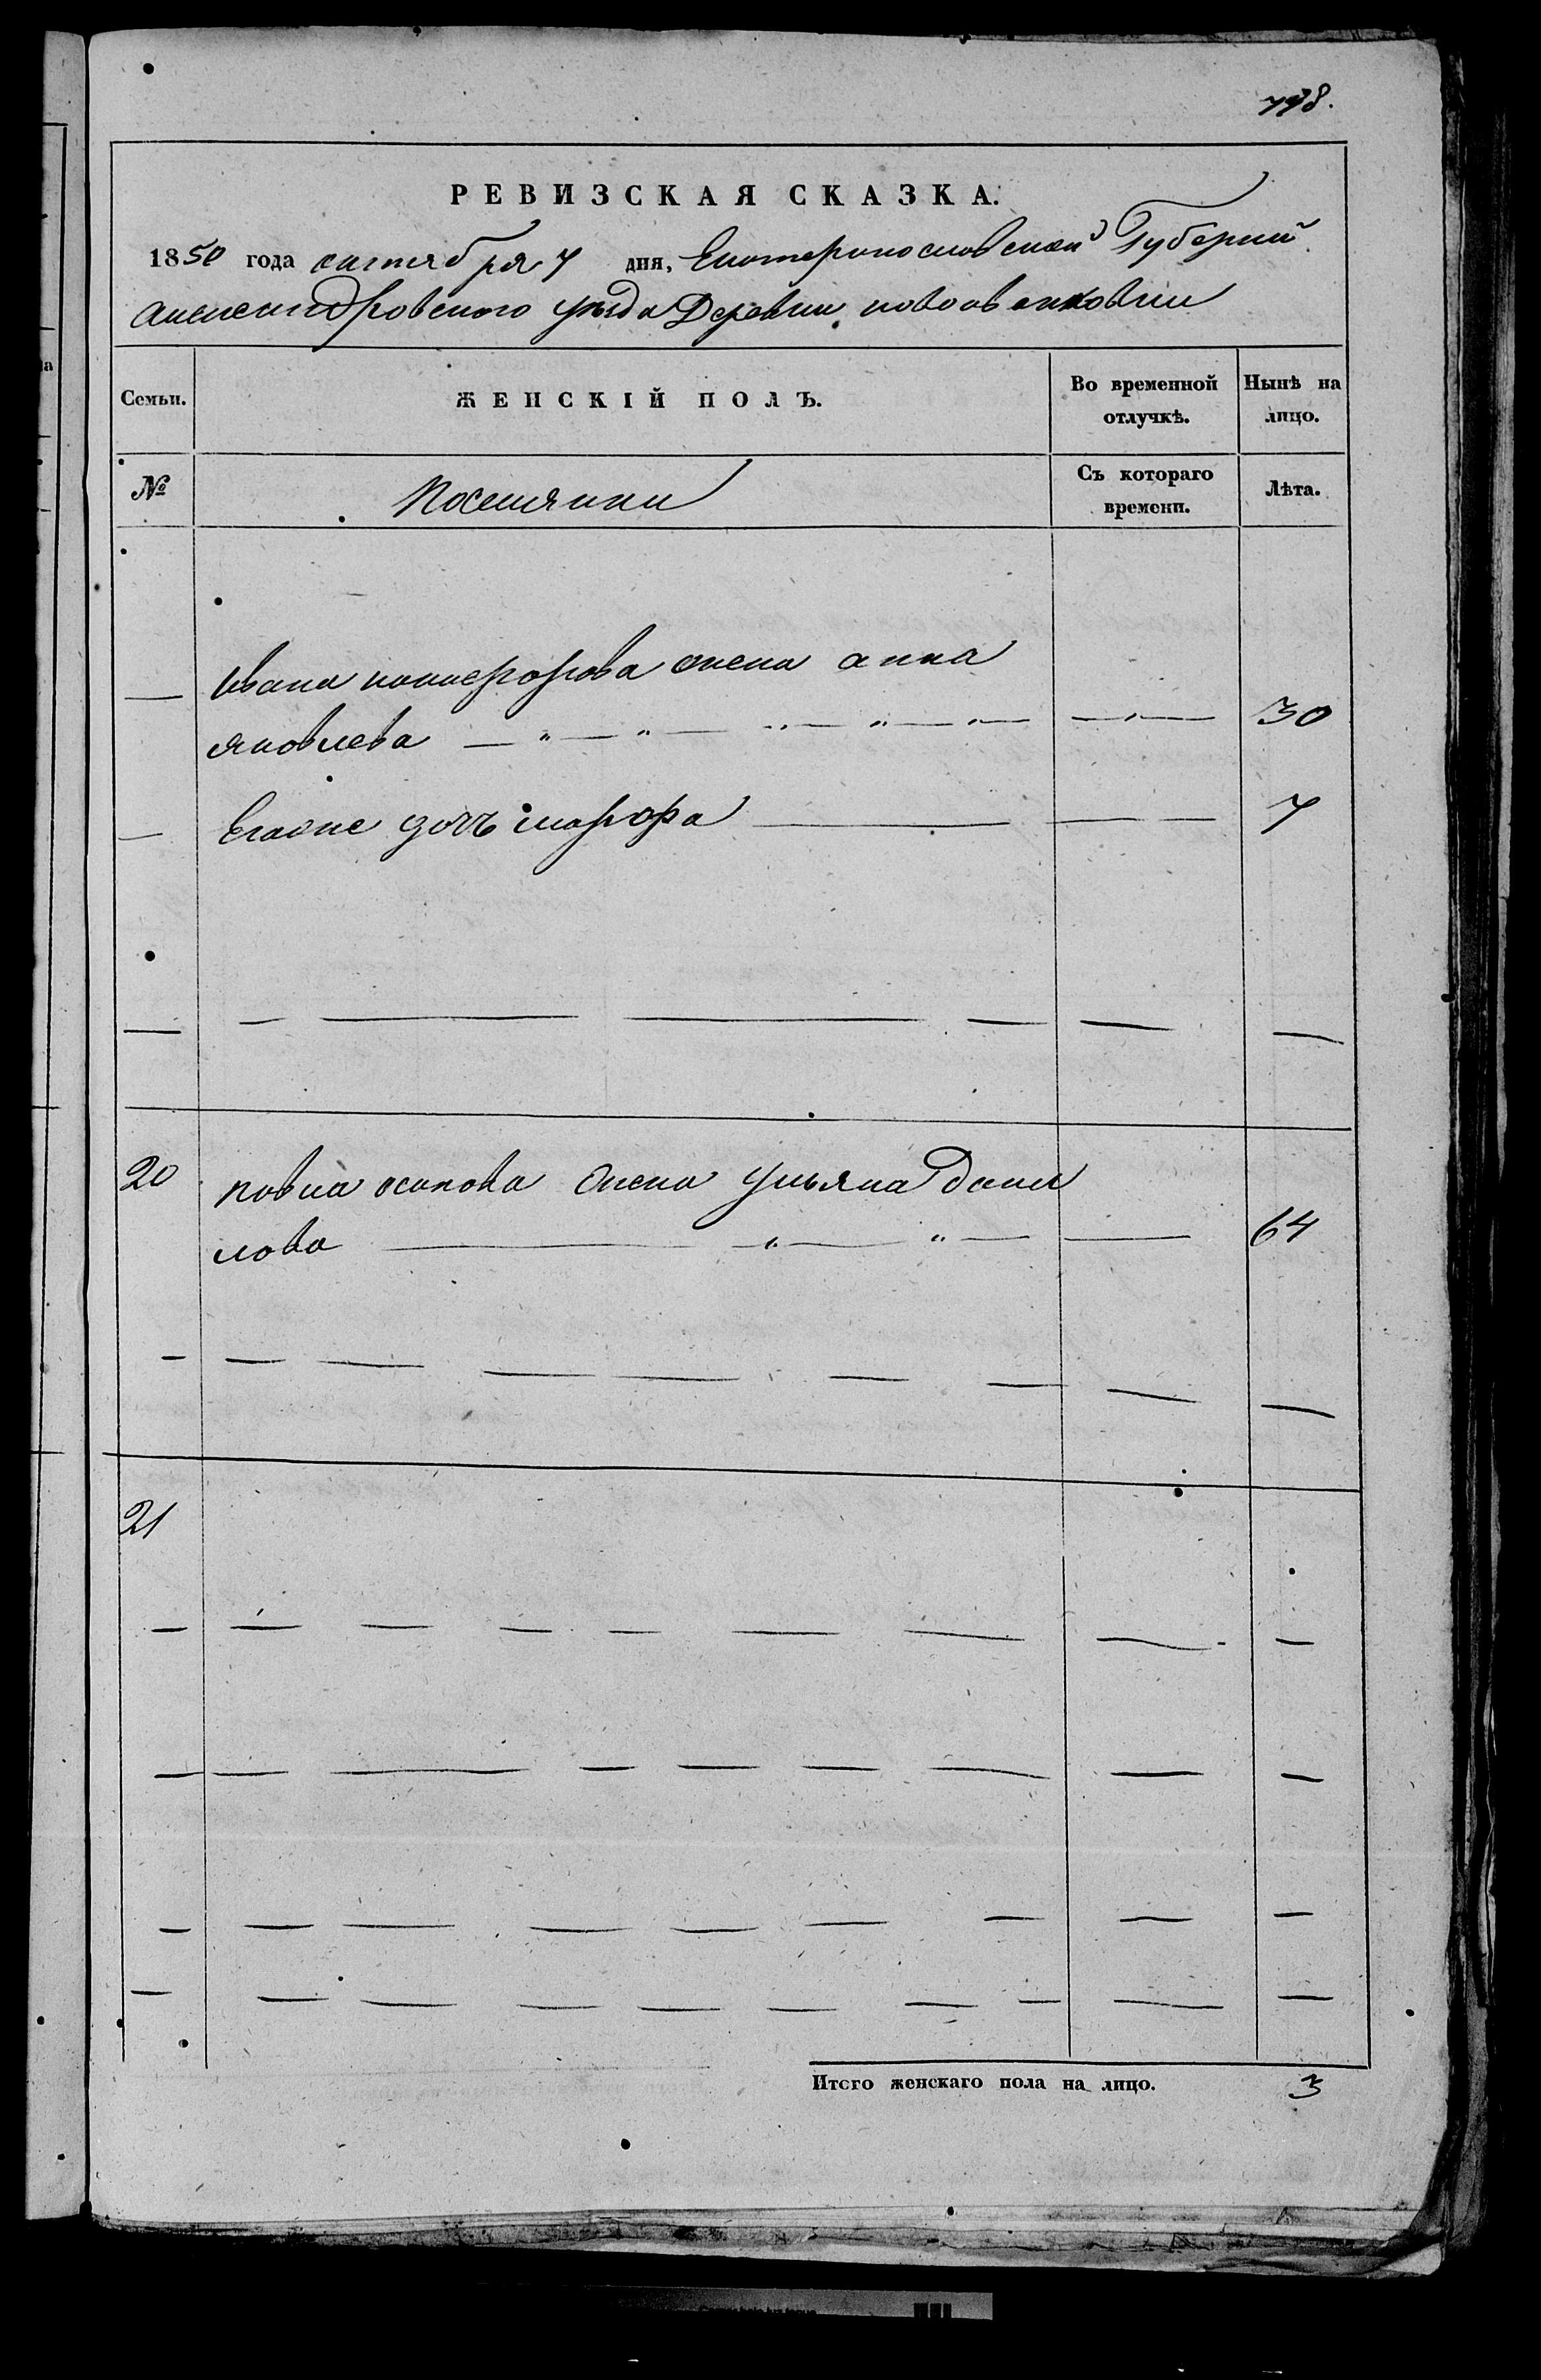 798.
РЕВИЗСКАЯ СКАЗКА.
1850 года сентября 7 дня, Екатеринославской Губернии
Александровского уезда Деревни
Семьи. ЖЕНСКІЙ ПОЛЪ. Во временной отлучкѣ. Нынѣ на лицо.
№ Поселянки Съ котораго времени. Лѣта.
Ивана никифорова жена анна
яковлева 30
Егоже дочь марфа 7
20 павла осипова жена ульяна дани
лова 64
21
Итого женскаго пола на лицо. 3